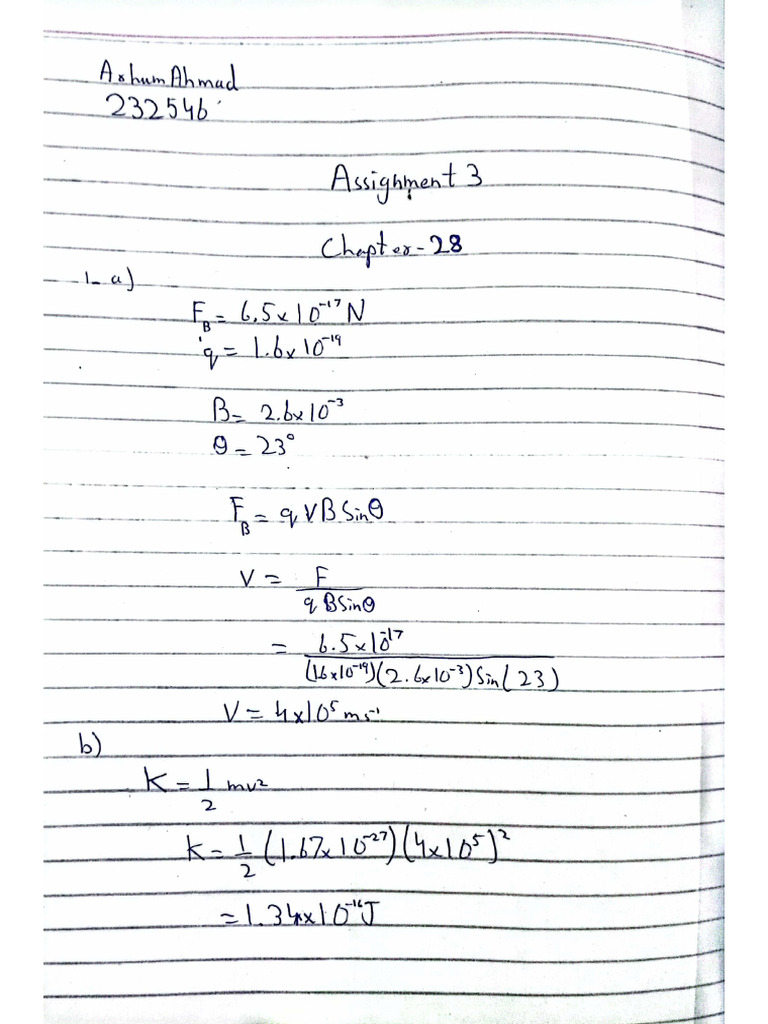 Arhum Ahmad
232546
Assignment 3
Chapter-28
1- a)
F_B = 6.5x10^-17 N
q = 1.6x10^-19
B = 2.6x10^-3
θ = 23°
F_B = q V B Sinθ
V = F / q B Sinθ
= 6.5x10^-17 / (1.6x10^-19)(2.6x10^-3) Sin(23)
V = 4x10^5 ms^-1
b)
K = 1/2 mv^2
K = 1/2 (1.67x10^-27)(4x10^5)^2
= 1.34x10^-16 J